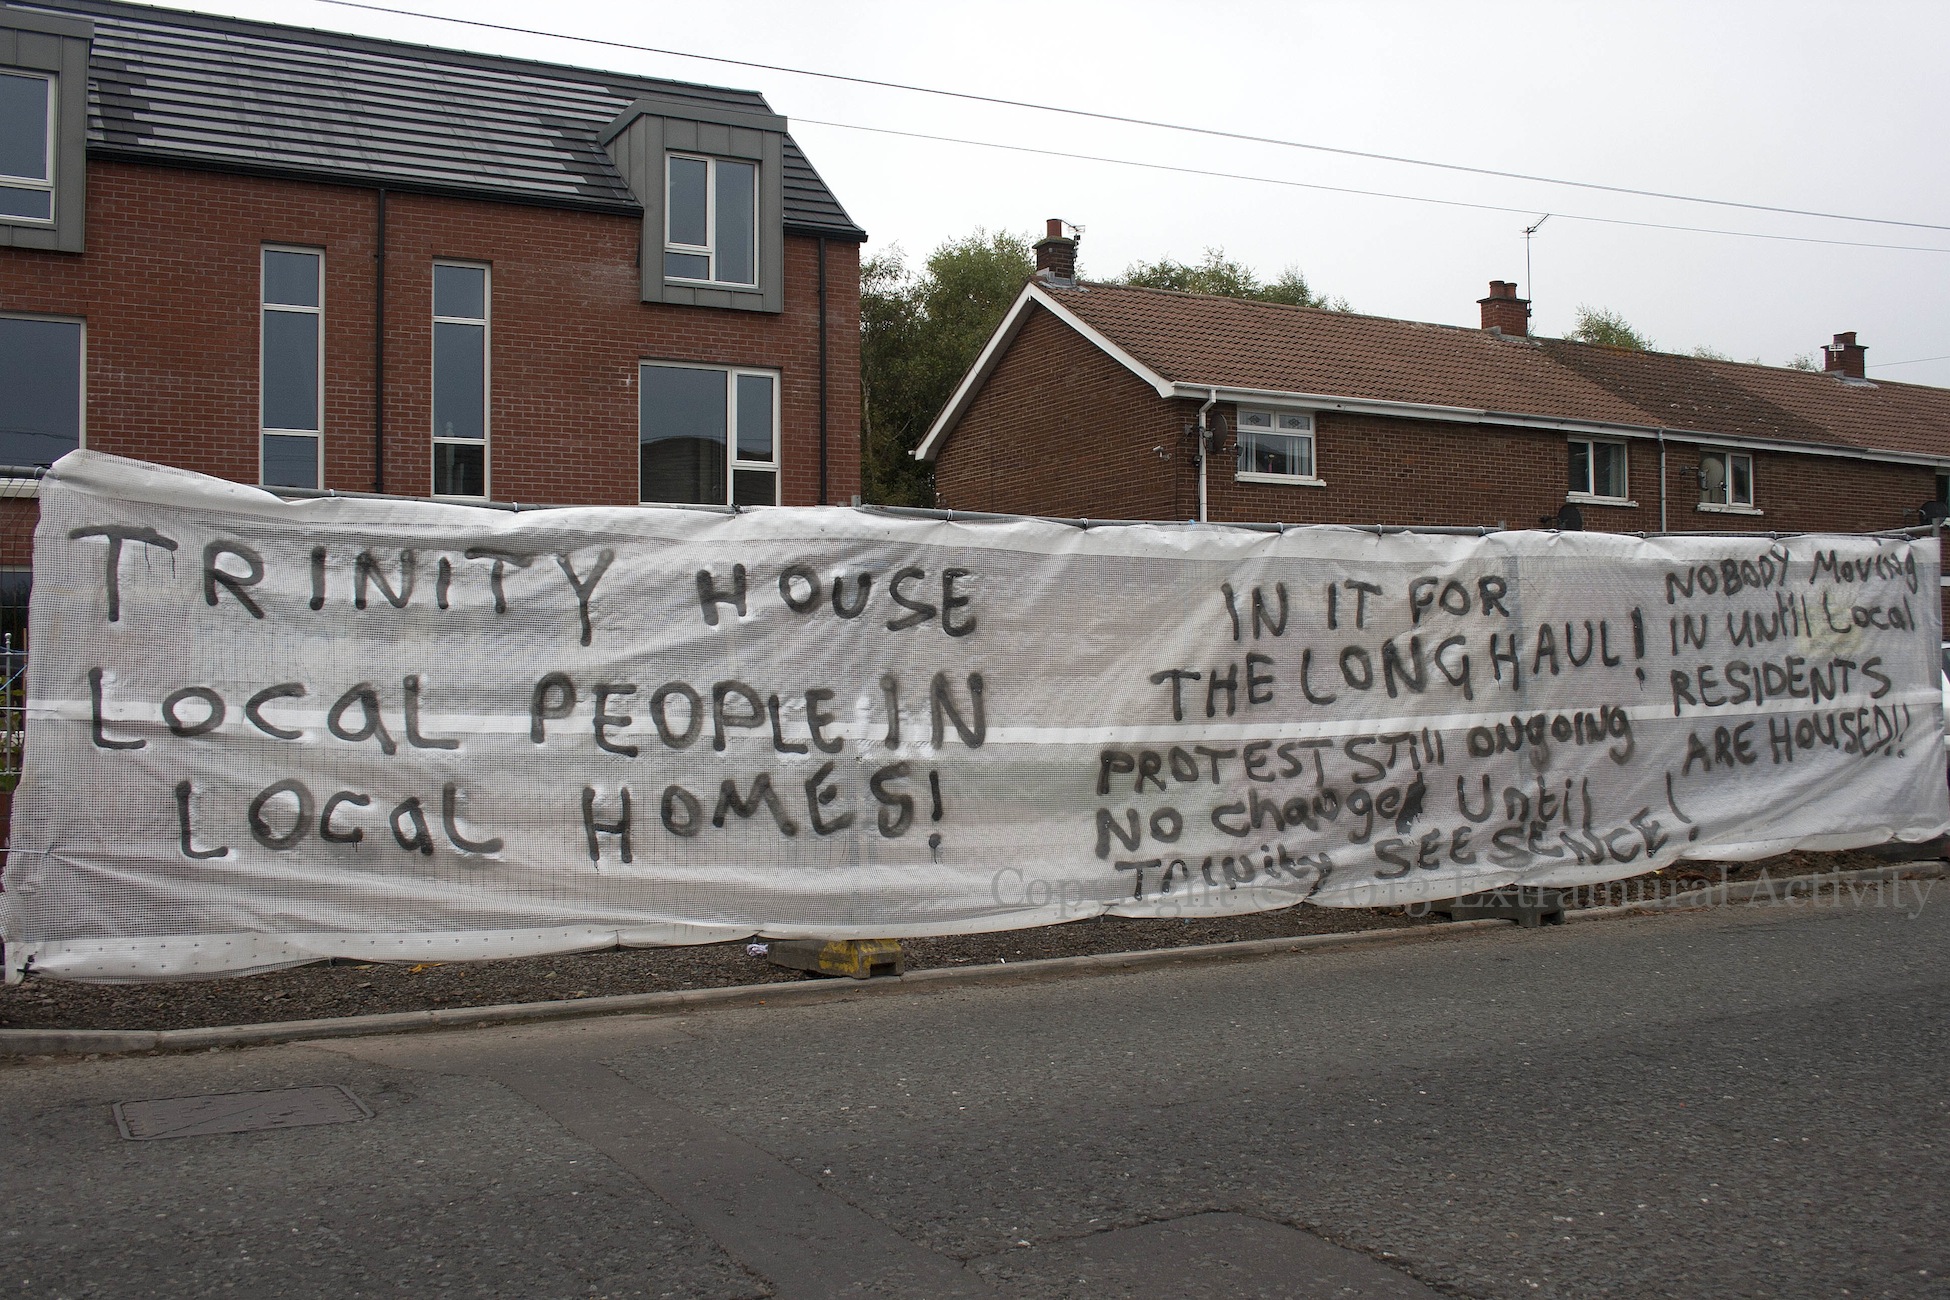 TRINITY HOUSE
LOCaL PEOPLE IN
LOCaL HOMES!
IN IT FOR
THE LONG HAUL!
PROTEST STill ONGOING
NO Change Until
TRINity SEE SENCE!
NOBODY MOVING
IN UNtil Local
RESIDENTS
ARE HOUSED!!
Copyright © 2013 Extramural Activity